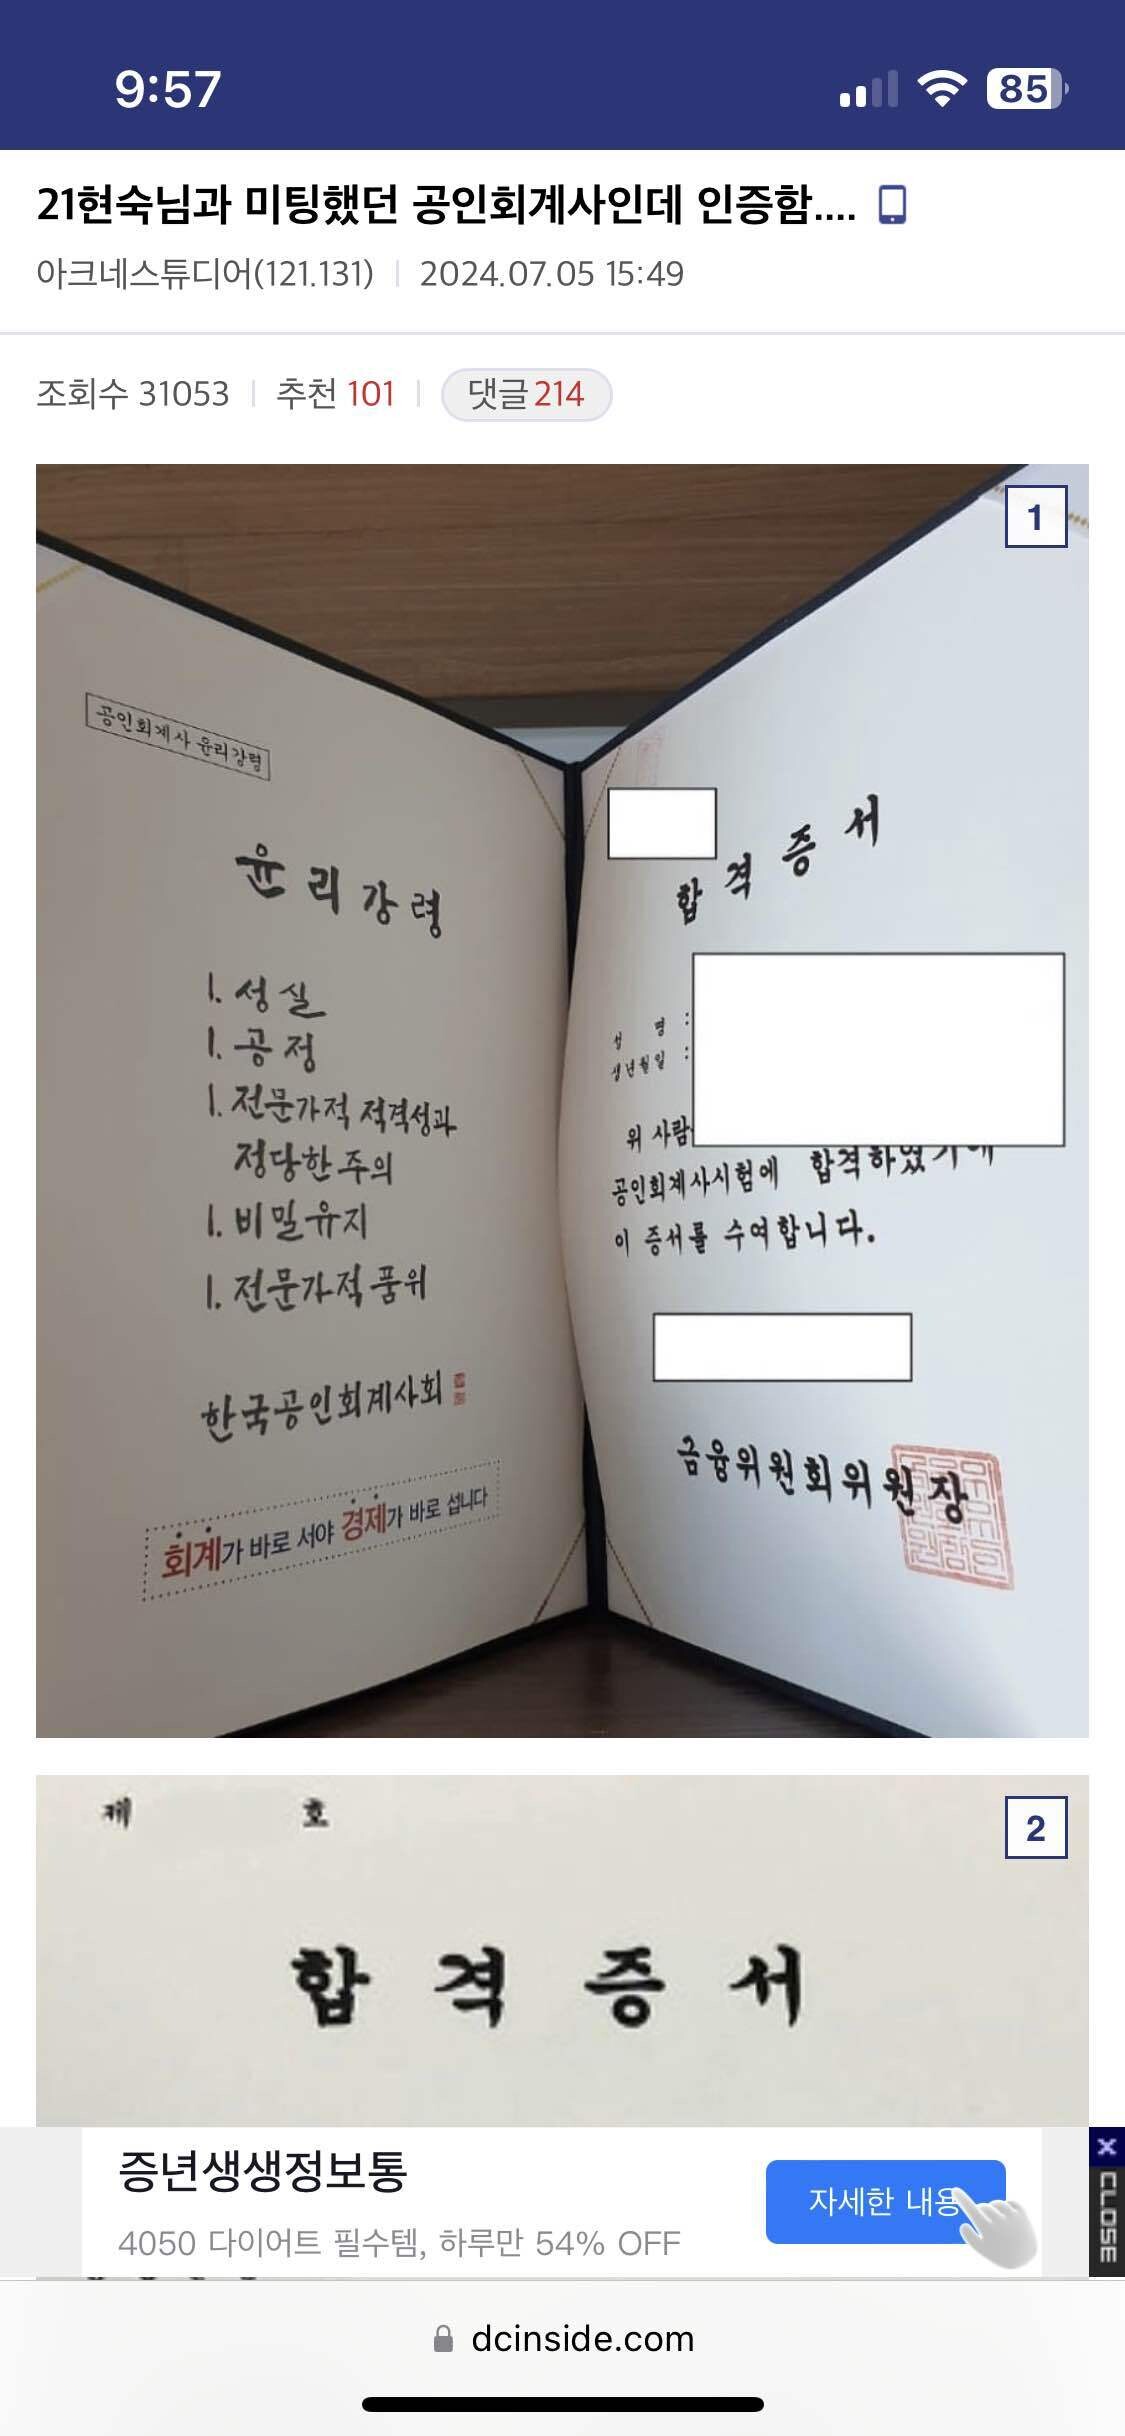 9:57
85
21현숙님과 미팅했던 공인회계사인데 인증함....
아크네스튜디어(121.131) | 2024.07.05 15:49
조회수 31053 | 추천 101 | 댓글 214
1
공인회계사 윤리강령
윤리강령
1. 성실
1. 공정
1. 전문가적 적격성과
정당한 주의
1. 비밀유지
1. 전문가적 품위
한국공인회계사회
회계가 바로 서야 경제가 바로 섭니다
합격증서
성 명 :
생년월일 :
위 사람
공인회계사시험에 합격하였기에
이 증서를 수여합니다.
금융위원회위원장
2
제 호
합격증서
증년생생정보통
4050 다이어트 필수템, 하루만 54% OFF
자세한 내용
X CLOSE
dcinside.com